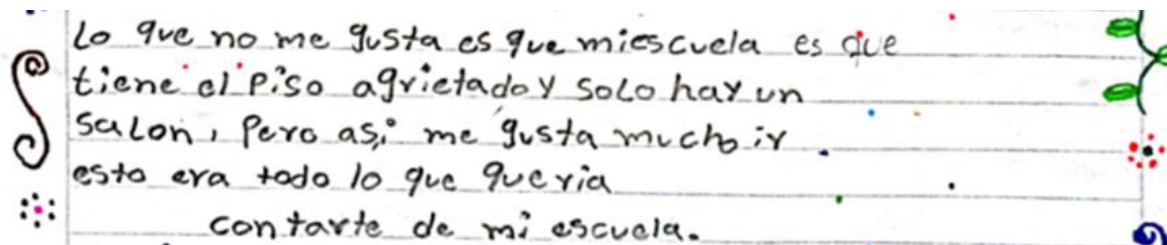 Lo que no me gusta es que miescuela es que
tiene el piso agrietado y solo hay un
salon, Pero asi me gusta mucho ir
esto era todo lo que queria
contarte de mi escuela.